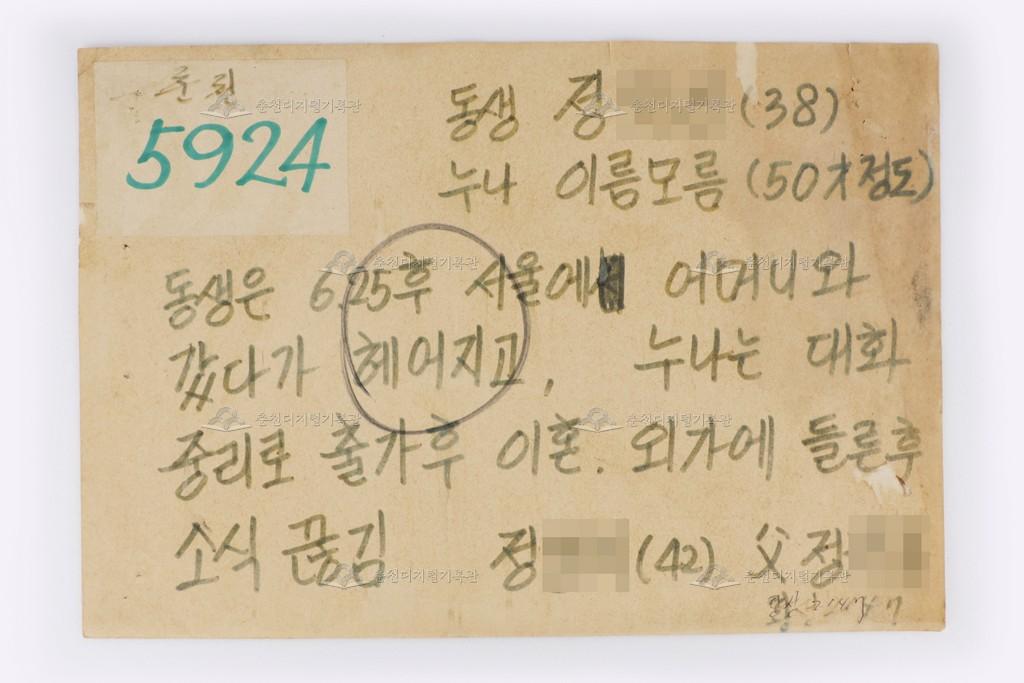 춘천
5924
동생 정 (38)
누나 이름모름 (50才정도)
동생은 6.25후 서울에 어머니와
갔다가 헤어지고, 누나는 대화
중리로 출가후 이혼. 외가에 들른후
소식 끊김 정 (42) 父 정
춘천디지털기록관
춘천디지털기록관
춘천디지털기록관
춘천디지털기록관
춘천디지털기록관
춘천디지털기록관
춘천디지털기록관
춘천디지털기록관